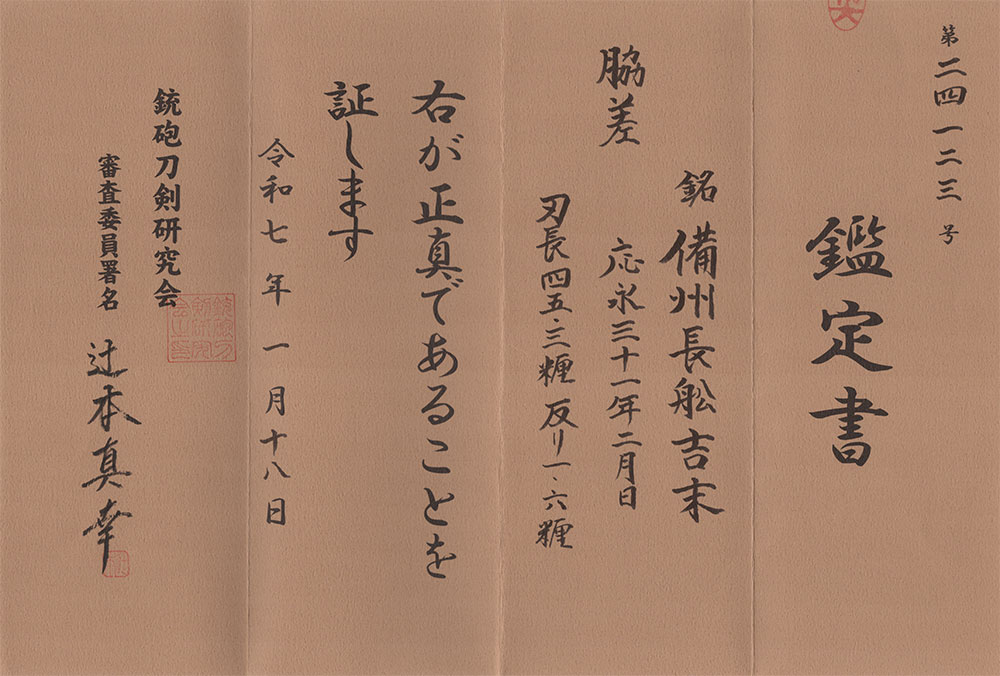 第二四一二三号
鑑定書
脇差
銘 備州長舩吉末
応永三十一年二月日
刃長四五・三糎 反り一・六糎
右が正真であることを
証します
令和七年一月十八日
銃砲刀剣研究会
審査委員署名 辻本真幸